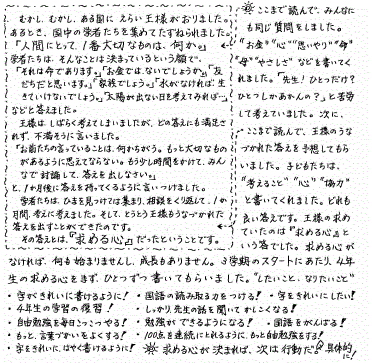 むかし、むかし、ある国に えらい 王様が おりました。
あるとき、国中の 学者たちを 集めて たずねられました。
「人間にとって、1番大切なものは、何か。」
学者たちは、そんなことは 決まっているという顔で、
「それは命であります。」「お金ではないでしょうか。」「友
だちだと思います。」「家族でしょう。」「水がなければ 生
きていけないでしょう。」「太陽が出ない日を考えてみれば…」
などと答えました。
王様は しばらく考えてしまいましたが、どの答えにも 満足さ
れず、不満そうに言いました。
「お前たちの言っていることは、何かちがう。もっと大切なもの
があるように思えてならない。もう少し時間をかけて、みん
なで 討論して、答えを出しなさい。」
と、1か月後に答えを持ってくるように言いつけました。
学者たちは、ひまを見つけては集まり、相談をくり返して、1か
月間、考えに考えました。そして、とうとう王様もうなづかれた
答えを出すことができたのです。
その答えとは、『求める心』だったということです。
※ ここまで読んで、みんなに
も同じ質問をしました。
“お金” “心” “思いやり” “命”
“母” “やさしさ” などを書いてく
れました。「先生！ひとつだけ？
ひとつしかあかんの？」と苦労
して考えていました。次に、
ここまで読んで、王様のうな
づかれた答えを予想してもら
いました。子どもたちは、
“考えること” “心” “協力”
と書いてくれました。どれも
良い答えです。王様の求め
ていたのは『求める心』と
いう答でした。求める心が
なければ、何も始まりませんし、成長もありません。3学期のスタートにあたり、4年
生の求める心をまず、ひとつずつ書いてもらいました。“したいこと、なりたいこと”
・字がきれいに書けるように！ ・国語の読み取る力をつける！ ・字をきれいにしたい！
・4年生の学習の復習！ ・しっかり先生の話を聞いてかしこくなる！
・自由勉強を毎日こつこつやる！ ・勉強ができるようになる！ ・国語をがんばる！
・もっと、言葉づかいをよくする！ ・100点を連続にとれるように、もっと自由勉強をする！
・字をきれいに、はやく書けるように！ ※ 求める心が決まれば、次は行動だ！具体的に！